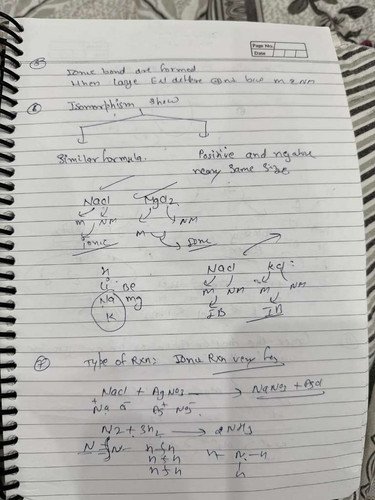 Page No.
Date
5
Ionic bond are formed
When large EN differe b/w m & NM
6
Isomorphism show
Similar formula.
Positive and negative
neary same size
NaCl MgCl2
M NM NM
M
Ionic Ionic
NaCl KCl
M NM M NM
IB IB
H
Li Be
Na mg
K
7
Type of Rxn: Ionic Rxn very fas
NaCl + AgNO3 → NaNO3 + AgCl
N2 + 3H2 → 2NH3
N N H H H N H
H H
H H H